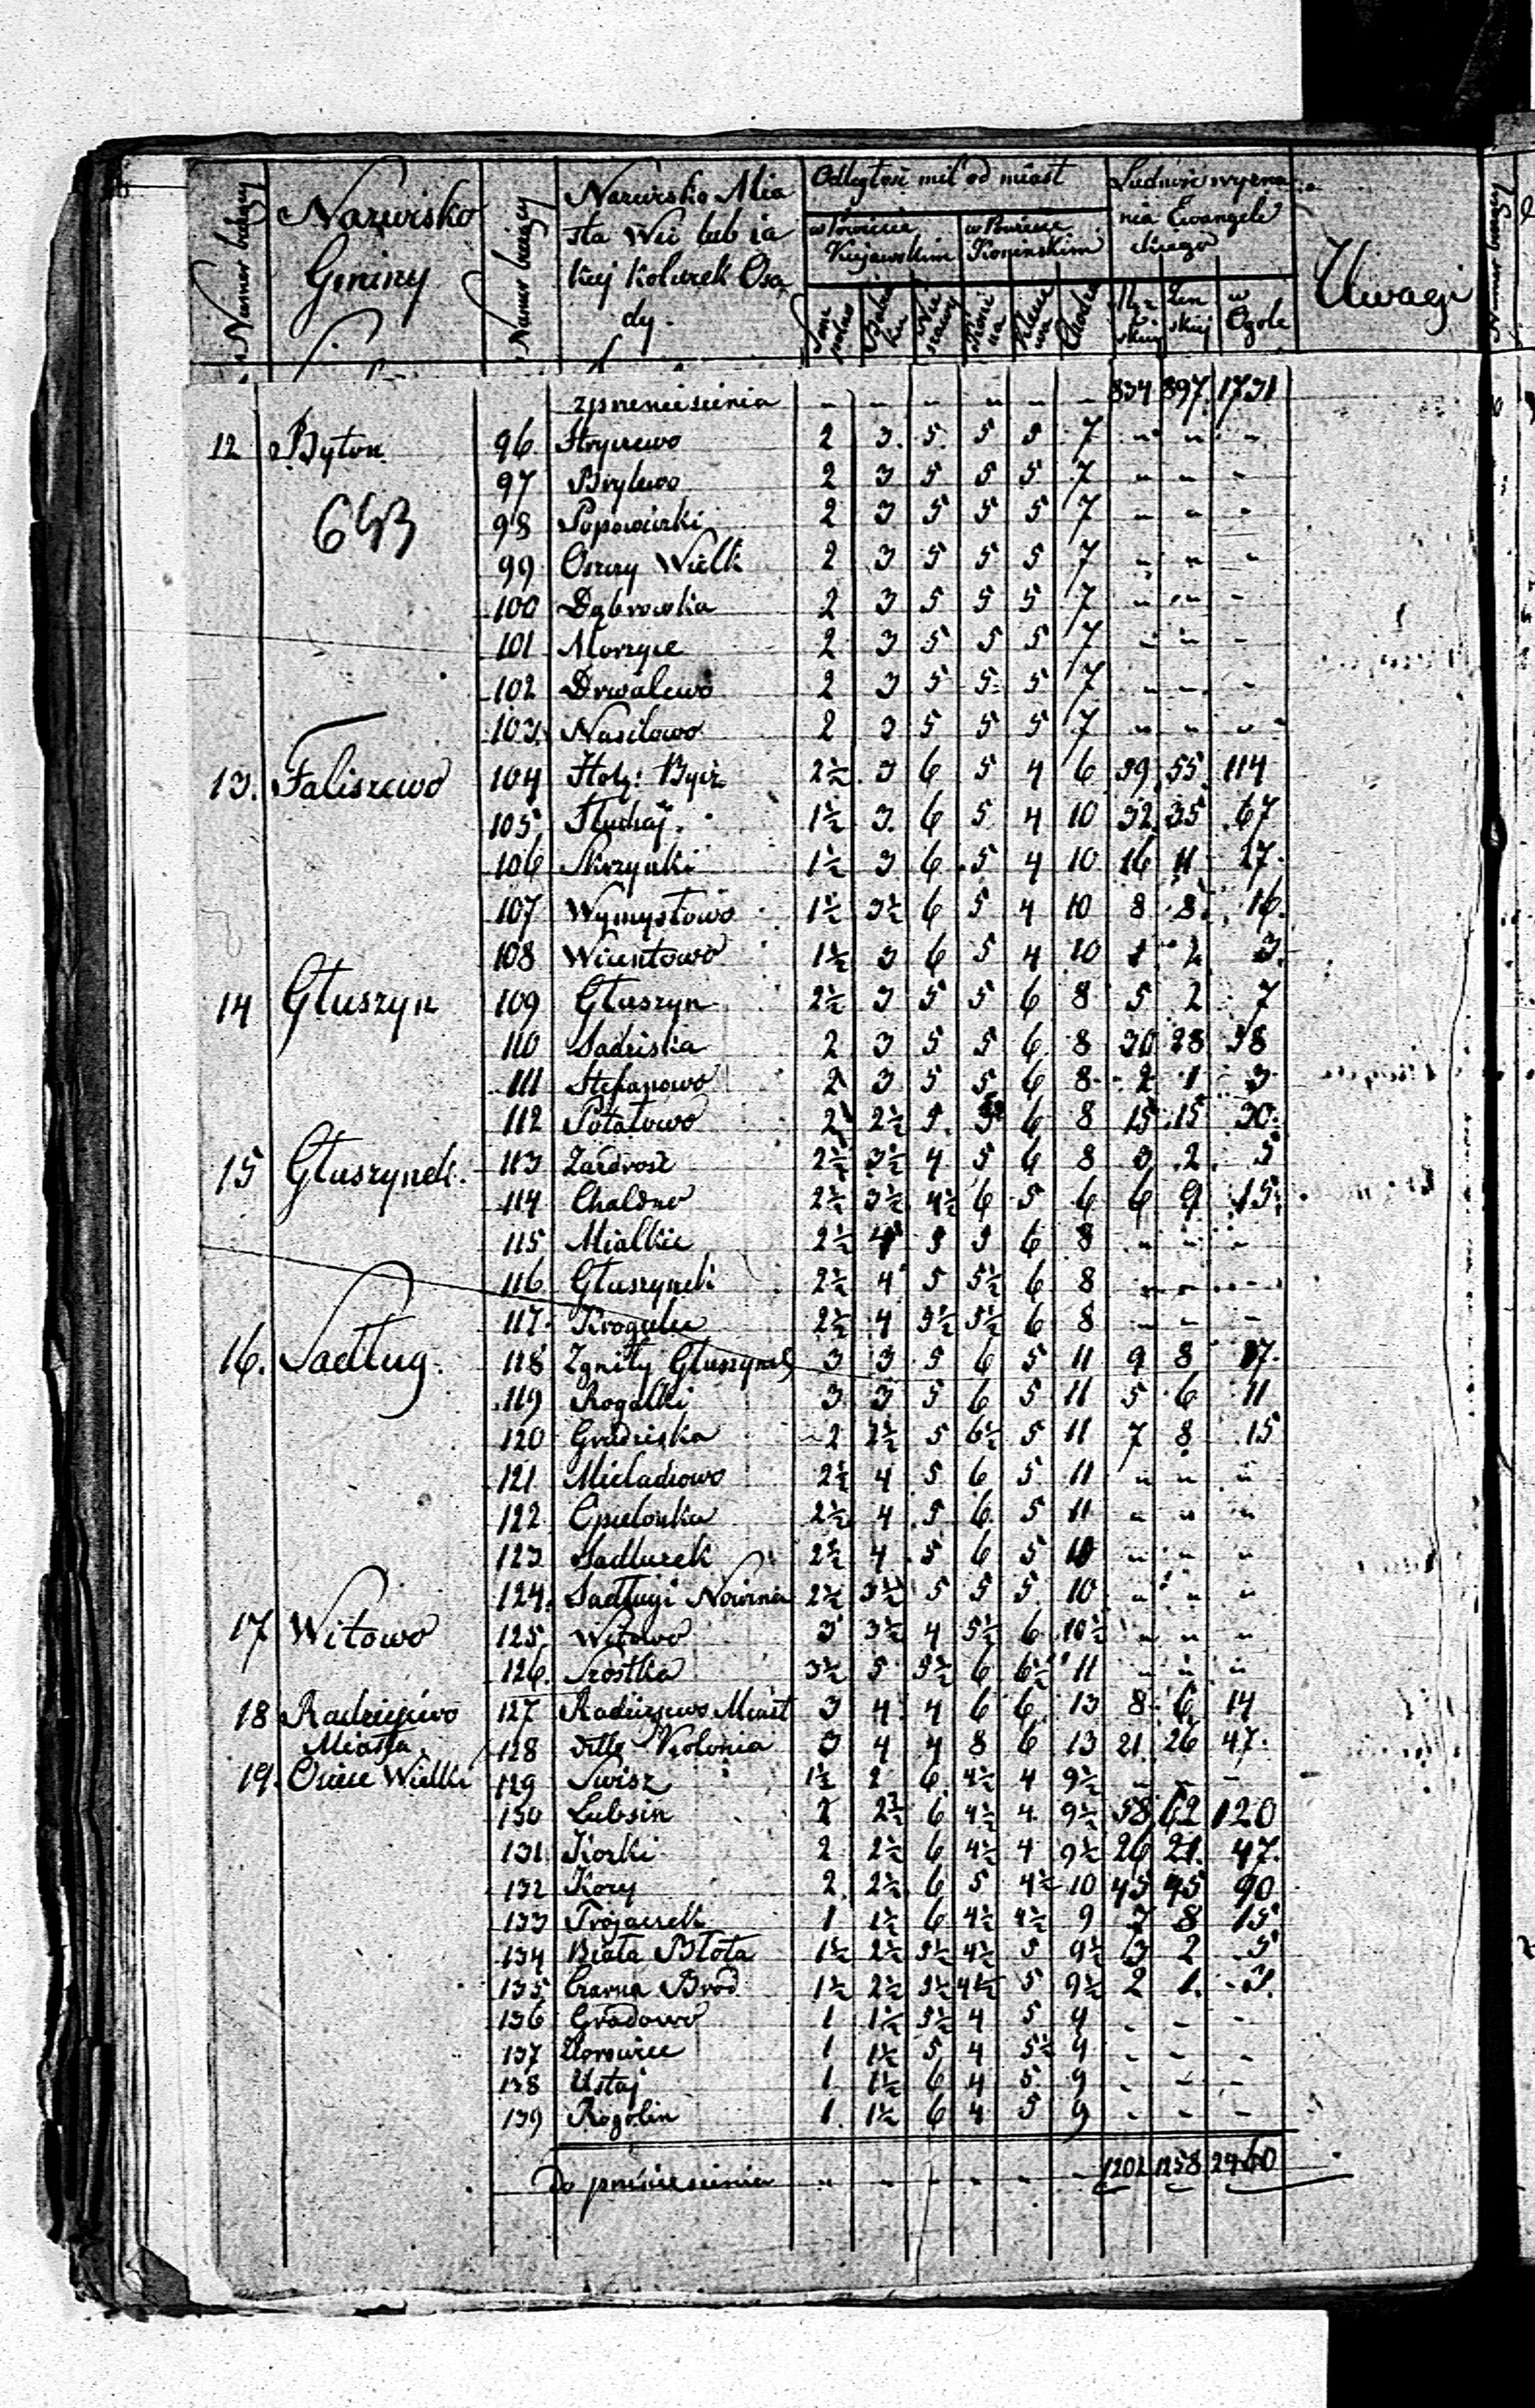 Numer bieżący
Nazwisko Gminy
Numer bieżący
Nazwisko Mia
sta Wsi lub ia
kiej kolwiek Osa
dy.
Odległość mil od miast
w Powiecie Kujawskim
w Powiecie Konińskim
Ludność wyzna
nia Ewangeli
ckiego
w Ogole
Uwagi
z przeniesienia - - - - - - 834 897 1731
12 Byton 96 Stryjewo 2 3 5 5 5 7 - - -
97 Brylewo 2 3 5 5 5 7 - - -
643
98 Popowiczki 2 3 5 5 5 7 - - -
99 Oszczy Wielk 2 3 5 5 5 7 - - -
100 Dąbrowka 2 3 5 5 5 7 - - -
101 Morzyce 2 3 5 5 5 7 - - -
102 Drwalewo 2 3 5 5 5 7 - - -
103 Nasilowo 2 3 5 5 5 7 - - -
13. Faliszewo 104 Holz: Bycz 2½ 3 6 5 4 6 59 55 114
105 Słuchaj 1½ 3 6 5 4 10 32 35 67
106 Skrzynki 1½ 3 6 5 4 10 16 11 27
107 Wymysłowo 1½ 3½ 6 5 4 10 8 8 16
108 Wicentowo 1½ 3 6 5 4 10 1 2 3
14 Głuszyn 109 Głuszyn 2½ 3 5 5 6 8 5 2 7
110 Sadziska 2 3 5 5 6 8 30 28 58
111 Stefanowo 2 3 5 5 6 8 2 1 3
112 Potołowo 2 2½ 5 6 8 15 15 30
15 Głuszynek 113 Zazdrość 2½ 3½ 4 5 6 8 3 2 5
114 Chaldno 2½ 3½ 4½ 6 5 6 6 9 15
115 Mialkie 2½ 4 5 5 6 8 - - -
116 Głuszynek 2½ 4 5 5½ 6 8 - - -
117 Krogulec 2½ 4 5½ 5½ 6 8 - - -
16. Sadług 118 Zgniły Głuszynek 3 3 5 6 5 11 9 8 17
119 Rogalki 3 3 5 6 5 11 5 6 11
120 Gradziska 2 2½ 5 6½ 5 11 7 8 15
121 2½ 4 5 6 5 11 - - -
122 Opielonka 2½ 4 5 6 5 11 - - -
123 Sadlużek 2½ 4 5 6 5 10 - - -
124 Sadługi Nowina 2½ 3½ 5 5 5 10 - - -
17 Witowo 125 Witowo 3 3½ 4 5½ 6 10½ - - -
126 Szostka 3½ 5 3½ 6 6½ 11 - - -
18 Radziejewo 127 Radziejewo Miast 3 4 4 6 6 13 8 6 14
Miasta 128 ditto Kolonia 3 4 4 8 6 13 21 26 47
19. Osiece Wielki 129 Swisz 1½ 2 6 4½ 4 9½ - - -
130 Lubsin 2 2½ 6 4½ 4 9½ 58 62 120
131 Kozki 2 2½ 6 4½ 4 9½ 26 21 47
132 Kozy 2 2½ 6 5 4½ 10 45 45 90
133 Trojaczek 1 1½ 6 4½ 4½ 9 7 8 15
134 Biała Błota 1½ 2½ 5½ 4½ 5 9½ 3 2 5
135 Czarny Brod 1½ 2½ 5½ 4½ 5 9½ 2 1 3
136 Gradowo 1 1½ 5½ 4 5 9 - - -
137 1 1½ 5 4 5½ 9 - - -
138 Ustaj 1 1½ 6 4 5 9 - - -
139 Rogolin 1 1½ 6 4 5 9 - - -
Do przeniesienia - - - - - - 1202 1258 2460